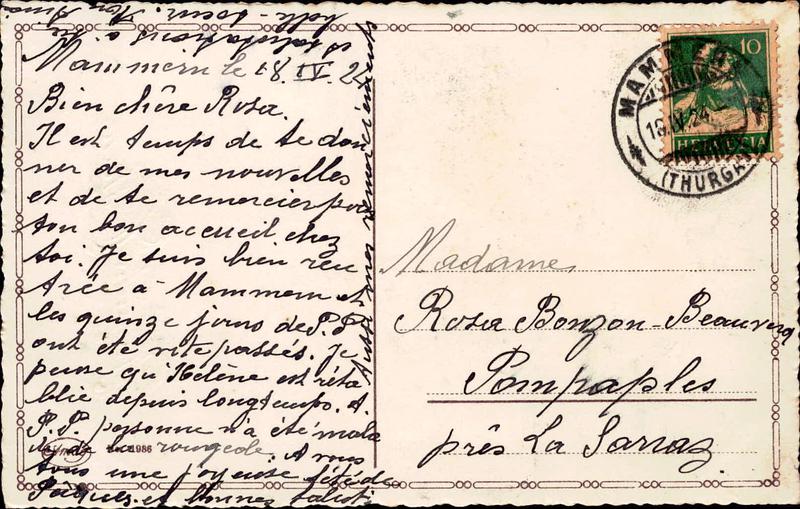 Mammern le 18. IV. 24
Bien chère Rosa.
Il est temps de te don
ner de mes nouvelles
et de te remercier pour
ton bon accueil chez
toi. Je suis bien ren
trée à Mammern et
les quinze jours de P. P.
ont été vite passés. Je
pense qu'Hélène est réta
blie depuis longtemps. A
P. P. personne n'a été mala
de de la rougeole. A vous
tous une joyeuse fête de
Pâques et bonnes
et salutations à
belle-soeur.
aussi mes remerciements
1986
MAMMERN
(THURGAU)
18.IV.24
10
HELVETIA
(THURGAU)
Madame
Rosa Bonzon-Beauverd
Pompaples
près La Sarraz